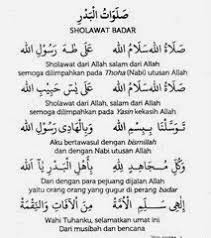 صَلَوَاتُ الْبَدْرِ
SHOLAWAT BADAR
صَلَاةُ اللهِ سَلَامُ اللهِ عَلَى طٰهَ رَسُوْلِ اللهِ
Sholawat dari Allah salam dari Allah
semoga dilimpahkan pada Thoha (Nabi) utusan Allah
صَلَاةُ اللهِ سَلَامُ اللهِ عَلَى يٰسٓ حَبِيْبِ اللهِ
Sholawat dari Allah salam dari Allah
semoga dilimpahkan pada Yasin kekasih Allah
تَوَسَّلْنَا بِبِسْمِ اللهِ وَبِالْهَادِى رَسُوْلِ اللهِ
Aku bertawasul dengan bismillah
dan dengan Nabi utusan Allah
وَكُلِّ مُجَاهِدٍ لِلّٰهِ بِأَهْلِ الْبَدْرِ يَا اَللهُ
Dan dengan para pejuang dijalan Allah
yaitu orang orang yang gugur di perang badar
إِلٰهِى سَلِّمِ الْأُمَّةَ مِنَ الْاٰفَاتِ وَالنِّقْمَةِ
Wahi Tuhanku, selamatkan umat ini
Dari musibah dan bencana